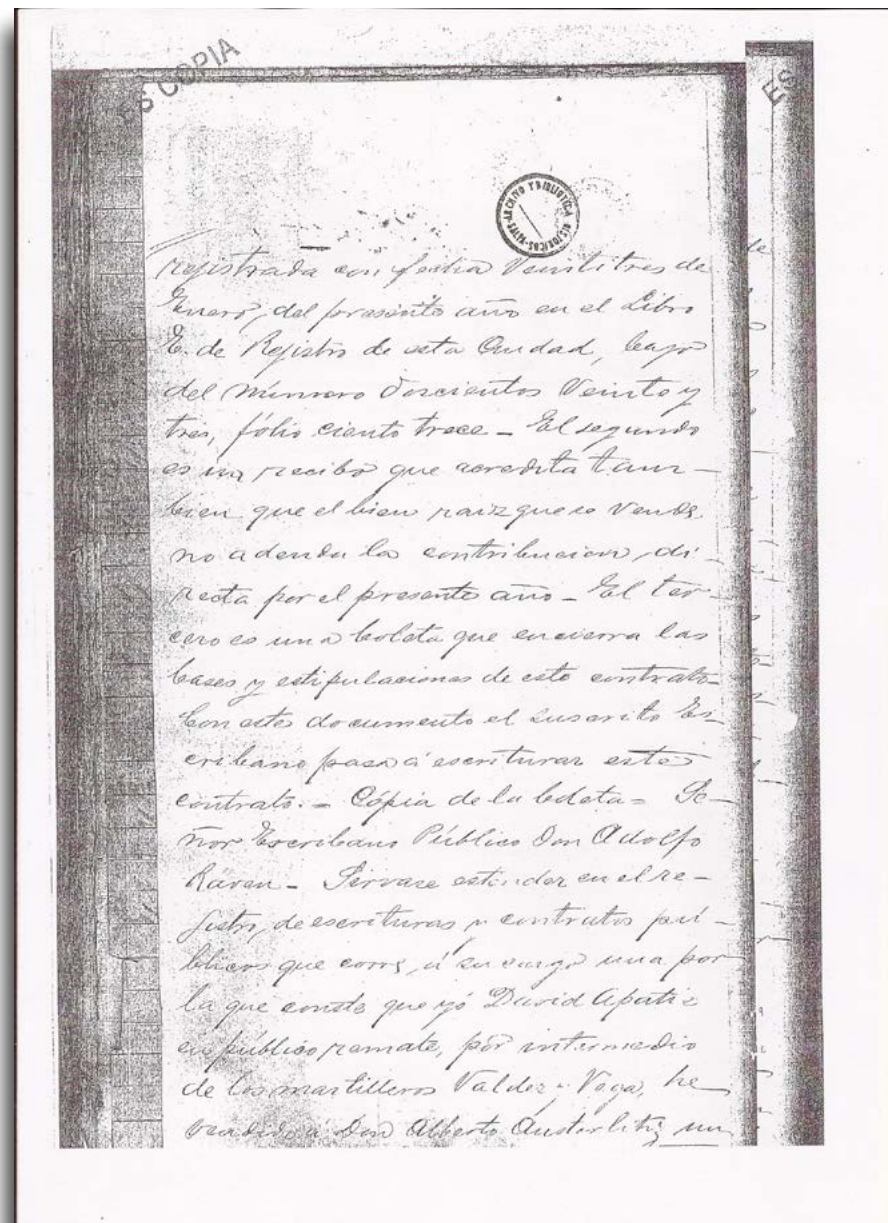 ES COPIA
ES
ARCHIVO Y BIBLIOTECA HISTORICAS
registrada con fecha Veintitres de
Enero, del presente año en el Libro
E. de Rejistro de esta Ciudad, bajo
del número Doscientos Veinte y
tres, fólio ciento trece - El segundo
es un recibo que acredita tam-
bien que el bien raiz que se vende
no adeuda la contribucion di-
recta por el presente año - El ter-
cero es una boleta que encierra las
bases y estipulaciones de este contrato
Con estos documento el suscrito Es-
cribano pasa á escriturar este
contrato. = Cópia de la boleta = Se-
ñor Escribano Público Don Adolfo
Raven - Sirvase estender en el re-
jistro, de escrituras y contratos pú-
blicos que corre, á su cargo una por
la que conste que yó David Apatie
en público remate, por intermedio
de los martilleros Valdez y Vega, he
vendido a Don Alberto Austerlitz un